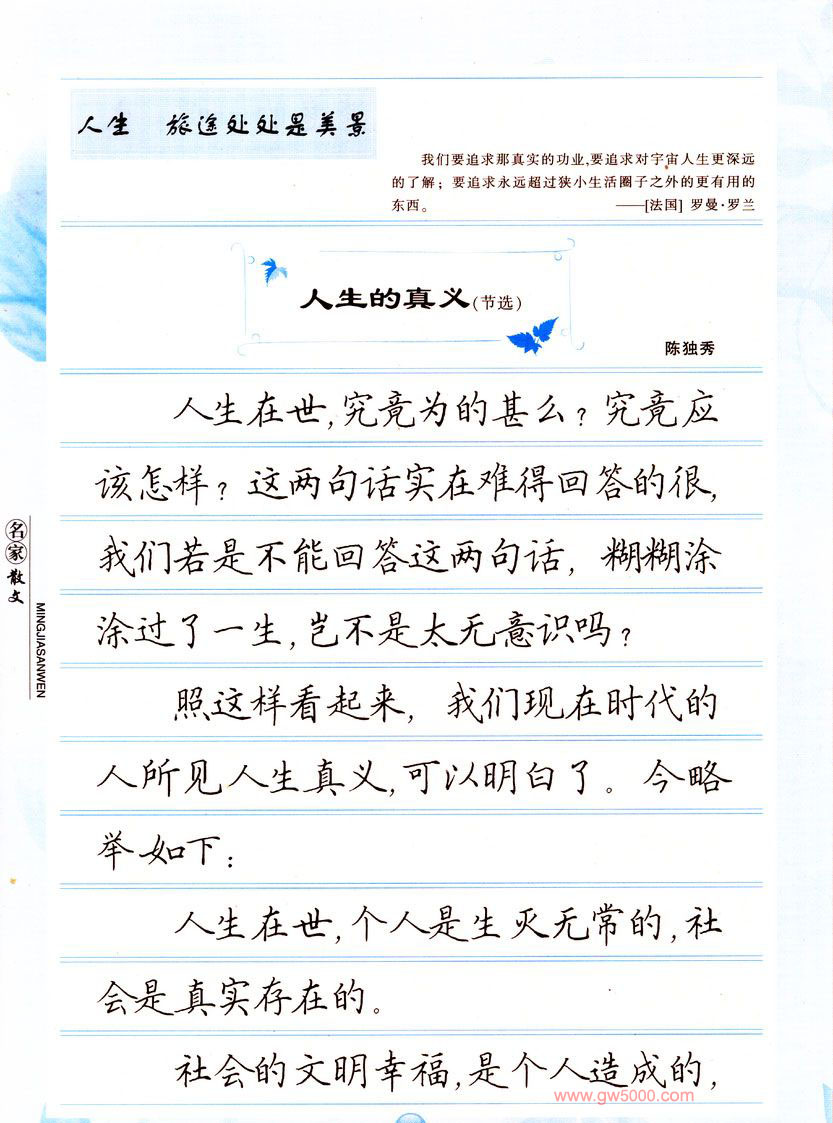 人生 旅途处处是美景
我们要追求那真实的功业,要追求对宇宙人生更深远
的了解；要追求永远超过狭小生活圈子之外的更有用的
东西。 ——[法国] 罗曼·罗兰
人生的真义(节选)
陈独秀
人生在世,究竟为的甚么?究竟应
该怎样?这两句话实在难得回答的很,
我们若是不能回答这两句话,糊糊涂
涂过了一生,岂不是太无意识吗?
照这样看起来,我们现在时代的
人所见人生真义,可以明白了。今略
举如下:
人生在世,个人是生灭无常的,社
会是真实存在的。
社会的文明幸福,是个人造成的,
名家散文
MINGJIASANWEN
www.gw5000.com